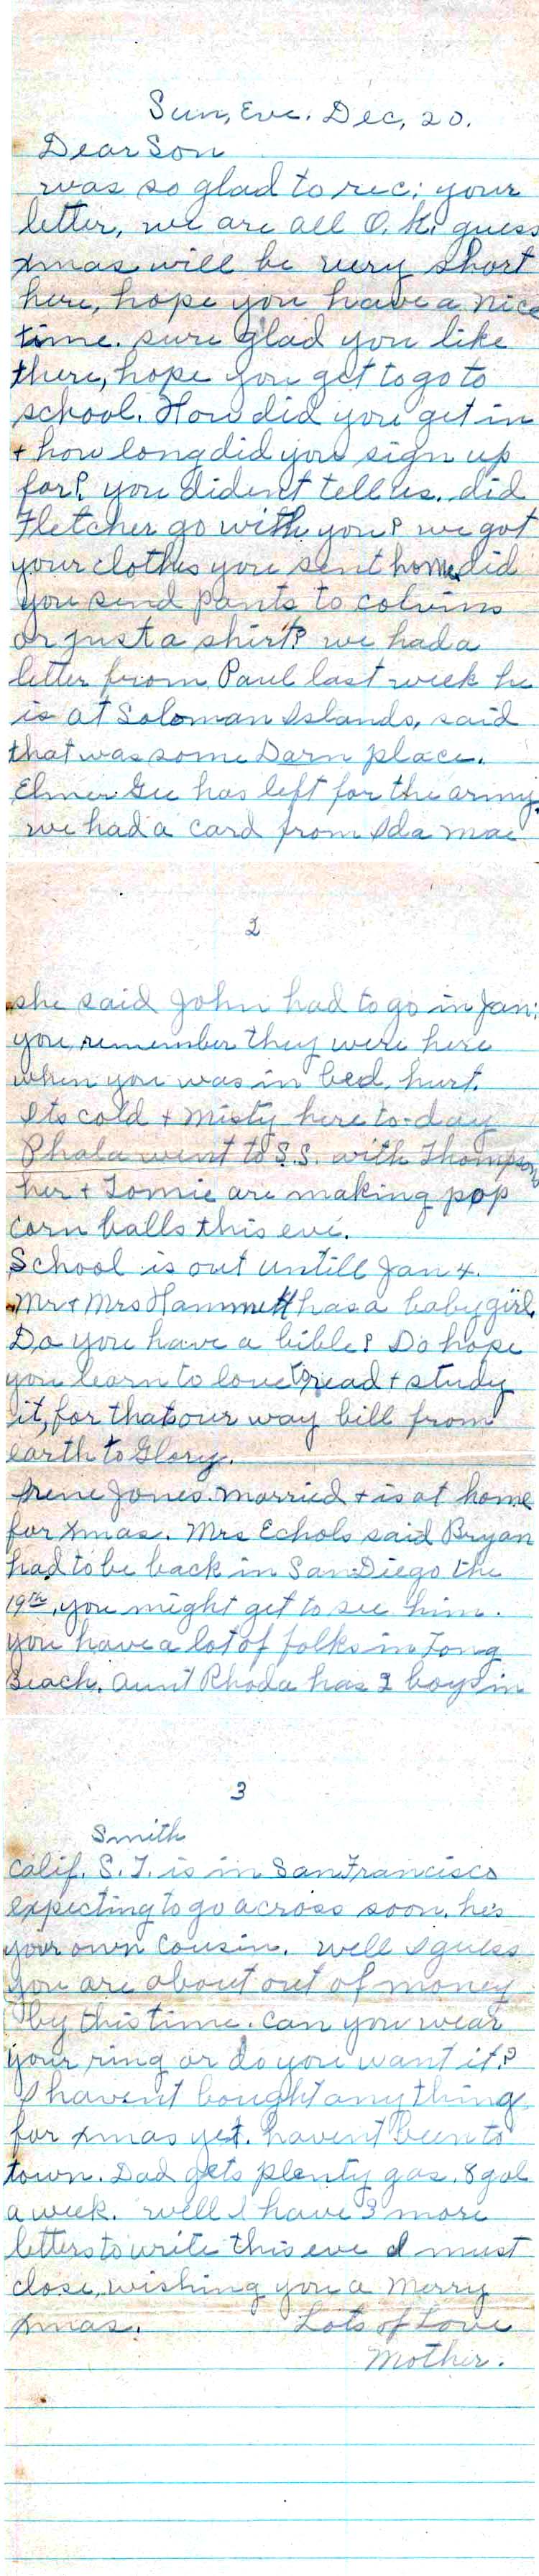 Sun, Eve. Dec, 20.
Dear Son
was so glad to rec; your
letter, we are all O.K. guess
xmas will be very short
here, hope you have a nice
time. sure glad you like
there, hope you get to go to
school. How did you get in
+ how long did you sign up
for? you dident tell us. did
Fletcher go with you? we got
your clothes you sent home, did
you send pants to colvins
or just a shirt? we had a
letter from Paul last week he
is at Soloman Islands, said
that was some Darn place.
Elmer Gee has left for the army.
we had a card from Ida Mae
2
she said John had to go in Jan;
you remember they were here
when you was in bed, hurt.
Its cold + misty here to-day
Phala went to S.S. with Thompson
her + Tomie are making pop
corn balls this eve.
School is out untill Jan 4.
Mr + Mrs Hammett has a baby girl.
Do you have a bible? Do hope
you learn to love to read + study
it, for thats our way bill from
earth to Glory.
Irene Jones married + is at home
for xmas. Mrs Echols said Bryan
had to be back in San Diego the
19th, you might get to see him.
you have a lot of folks in Long
Beach. Aunt Rhoda has 2 boys in
3
Smith
Calif. S.T. is in San Francisco
expecting to go across soon. he's
your own cousin. well I guess
you are about out of money
by this time. can you wear
your ring or do you want it?
I havent bought anything
for xmas yet. havent been to
town. Dad gets plenty gas. 8 gal
a week. well I have 3 more
letters to write this eve I must
close, wishing you a Merry
xmas. Lots of Love
Mother.